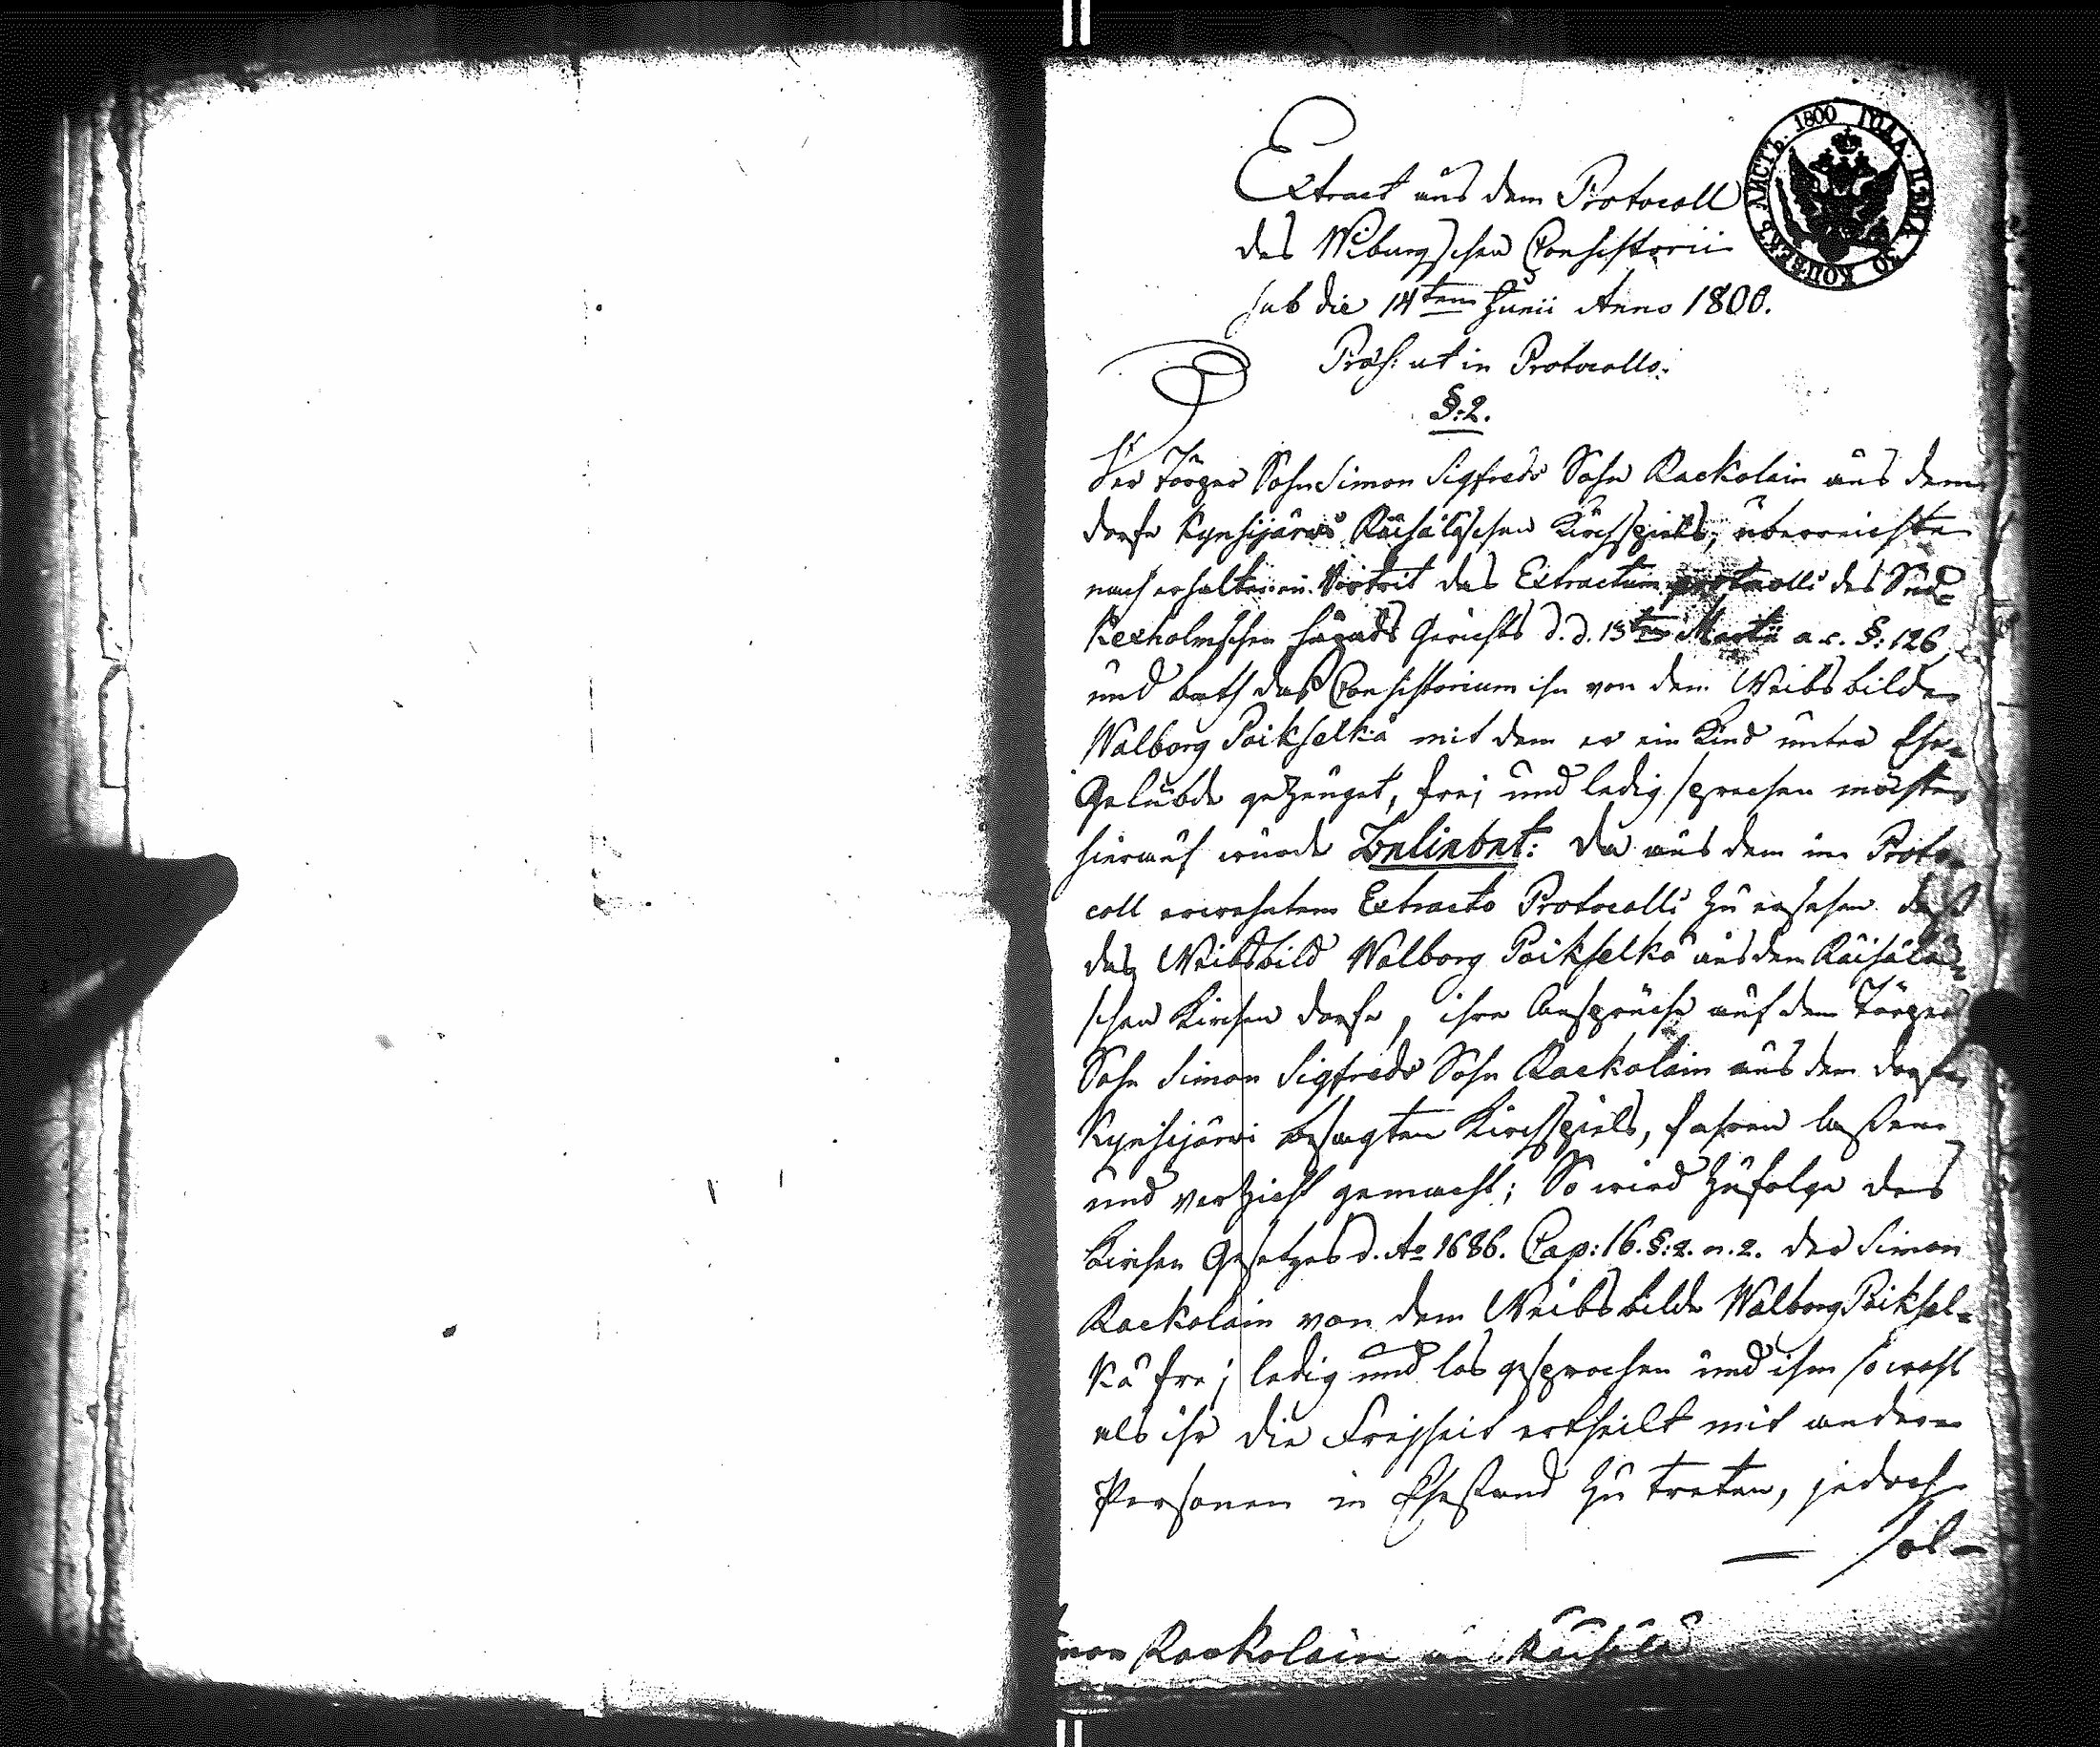 ЛИСТЪ 1800 ГОДА ЦѢНА 30 КОПѢЕКЪ
Extract aus dem Protocoll
des Wiburgschen Consistorii
sub die 14ten Junii Anno 1800.
Præs: ut in Protocollo.
§: 2.
Der Sohn Simon Sigfreds Sohn Rackolain aus dem
dorfe Kynsijärvi Räisäläschen Kirchspiels, überreichte
nach erhaltenem Vortrit das Extractum protocolli des Süd=
Kexholmschen Härads Gerichts d. d. 13ten Martii a. c. §: 126,
und bath daß Consistorium ihn von dem Weibsbilde
Walborg Poikselkä mit dem er ein Kind unter Ehe=
Gelübde gezeuget, frej und ledig sprechen möchte
hierauf wurde Beliebet: Da aus dem im Proto=
coll erwehntem Extracto Protocolli zu ersehen daß
das Weibsbild Walborg Poikselkä aus dem Räisälä=
schen Kirchen dorfe, ihre Ansprüche auf dem
Sohn Simon Sigfreds Sohn Rackolain aus dem dorfe
Kynsijärvi besagten Kirchspiels, fahren laßen
und verzicht gemacht; So wird zufolge des
Kirchen Gesetzes d. Ao 1686. Cap: 16. §: 2. n. 2. der Simon
Rackolain von dem Weibsbilde Walborg Poiksel=
kä frej ledig und los gesprochen und ihm sowohl
als ihr die Freiheit ertheilt mit andern
Personen in Ehestand zu treten, jedoch
— sol-
Rackolain Räisälä